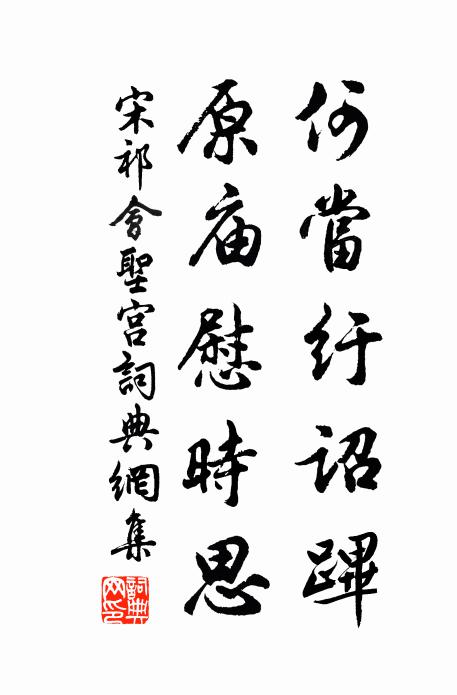 何當紆詔蹕
原庙慰時思
宋祁會聖宫詞典網集
詞典网印